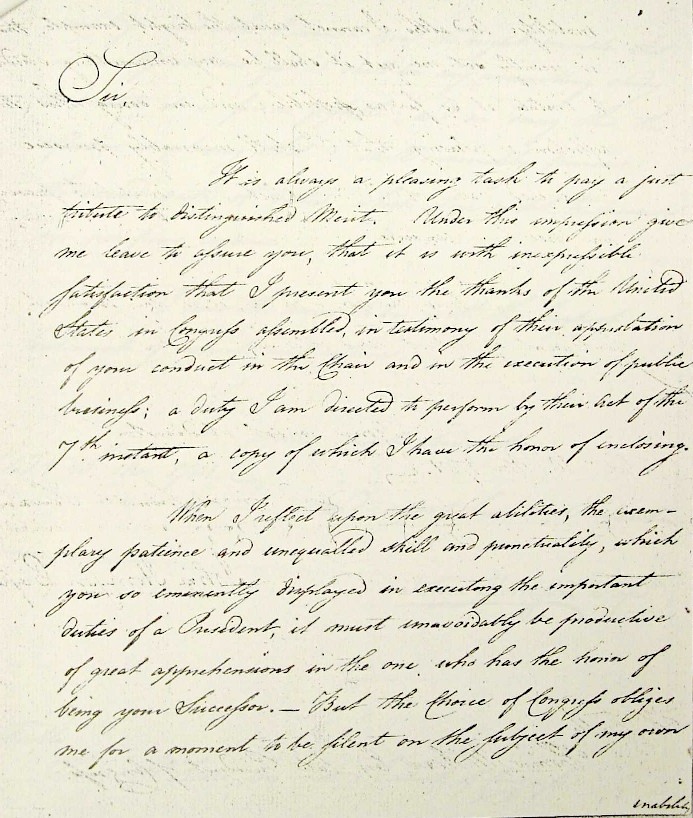 Sir,
It is always a pleasing task to pay a just
tribute to distinguished Merit. Under this impression give
me leave to assure you, that it is with inexpressible
satisfaction that I present you the thanks of the United
States in Congress assembled, in testimony of their approbation
of your conduct in the Chair and in the execution of public
business; a duty I am directed to perform by their Act of the
7th instant, a copy of which I have the honor of enclosing.
When I reflect upon the great abilities, the exem-
plary patience and unequalled skill and punctuality, which
you so eminently displayed in executing the important
duties of a President, it must unavoidably be productive
of great apprehensions in the one who has the honor of
being your Successor. — But the Choice of Congress obliges
me for a moment to be silent on the subject of my own
inability